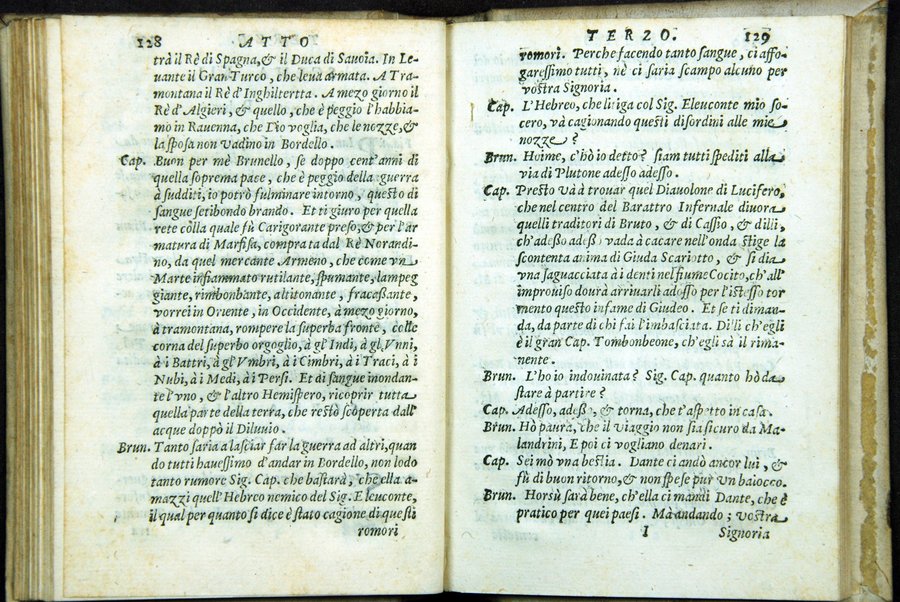 128 ATTO
trà il Rè di Spagna, & il Duca di Sauoia. In Le-
uante il Gran Turco, che leuà armata. A Tra-
montana il Rè d'Inghiltertta. A mezo giorno il
Rè d'Algieri, & quello, che è peggio l'habbia-
mo in Rauenna, che Dio voglia, che le nozze, &
la sposa non vadino in Bordello.
Cap. Buon per mè Brunello, se doppo cent'anni di
quella soprema pace, che è peggio della guerra
à sudditi, io potrò fulminare intorno, questo di
sangue setibondo brando. Et ti giuro per quella
rete colla quale fù Carigorante preso, & per l'ar
matura di Marfisa, comprata dal Rè Norandi-
no, da quel mercante Armeno, che come vn
Marte infiammato rutilante, spumante, lampeg
giante, rimbonbante, altitonante, fracassante,
vorrei in Oriente, in Occidente, à mezo giorno,
à tramontana, rompere la superba fronte, colle
corna del superbo orgoglio, à gl'Indi, à gl'Vnni,
à i Battri, à gl'Vmbri, à i Cimbri, à i Traci, à i
Nubi, à i Medi, à i Persi. Et di sangue inondan-
te l'vno, & l'altro Hemispero, ricoprir tutta
quella parte della terra, che restò scoperta dall'
acque doppò il Diluuio.
Brun. Tanto saria a lasciar far la guerra ad altri, quan
do tutti hauessimo d'andar in Bordello, non lodo
tanto rumore Sig. Cap. che bastarà, che ella a-
mazzi quell'Hebreo nemico del Sig. Eleuconte,
il qual per quanto si dice è stato cagione di questi
romori
TERZO. 129
romori. Perche facendo tanto sangue, ci affo-
garessimo tutti, nè ci saria scampo alcuno per
vostra Signoria.
Cap. L'Hebreo, che litiga col Sig. Eleuconte mio so-
cero, và cagionando questi disordini alle mie
nozze?
Brun. Hoime, c'hò io detto? siam tutti spediti alla
via di Plutone adesso adesso.
Cap. Presto và à trouar quel Diauolone di Lucifero,
che nel centro del Barattro Infernale diuora
quelli traditori di Bruto, & di Cassio, & dilli,
ch'adeßo adeßo vada à cacare nell'onda stige la
scontenta anima di Giuda Scariotto, & si dia
vna saguacciata à i denti nel fiume Cocito, ch'all'
improuiso dourà arriuarli adesso per l'istesso tor
mento questo infame di Giudeo. Et se ti diman-
da, da parte di chi fai l'imbasciata. Dilli ch'egli
è il gran Cap. Tombonbeone, ch'egli sà il rima-
nente.
Brun. L'ho io indouinata? Sig. Cap. quanto hò da
stare à partire?
Cap. Adesso, adeßo, & torna, che t'aspetto in casa.
Brun. Hò paura, che il viaggio non sia sicuro da Ma-
landrini, E poi ci vogliano denari.
Cap. Sei mò vna bestia. Dante ci andò ancor lui, &
fù di buon ritorno, & non spese pur vn baiocco.
Brun. Horsù sarà bene, ch'ella ci mandi Dante, che è
pratico per quei paesi. Mà andando; vostra
I Signoria